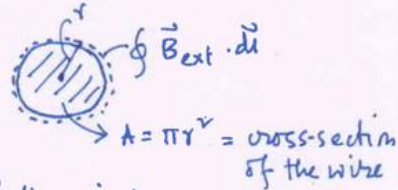 r
∮ B⃗ext · dl⃗
A = πr² = cross-section
of the wire